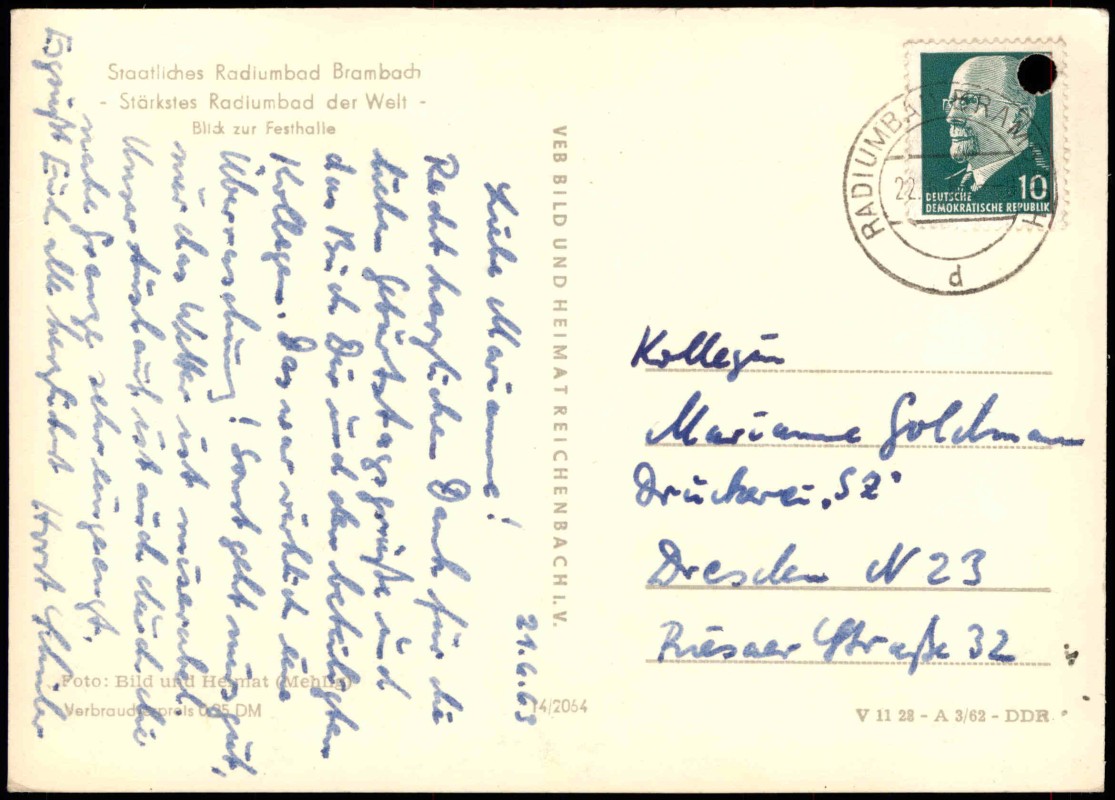 Staatliches Radiumbad Brambach
- Stärkstes Radiumbad der Welt -
Blick zur Festhalle
21.6.63
Liebe Marianne!
Recht herzlichen Dank für die
lieben Geburtstagsgrüße und
das Buch Dir und den beteiligten
Kollegen. Das war wirklich eine
Überraschung! Sonst geht mirs gut,
nur das Wetter ist miserabel
Unser Auslauf ist auch durch die
nahe Grenze sehr eingeengt.
Es grüßt Euch alle herzlichst Horst
VEB BILD UND HEIMAT REICHENBACH I. V.
Foto: Bild und Heimat (Mehlig)
Verbraucherpreis 0,25 DM
14/2064
RADIUMBAD BRAMBACH
22.
d
10
DEUTSCHE
DEMOKRATISCHE REPUBLIK
Kollegin
Marianne Goldmann
Druckerei "SZ"
Dresden N 23
Riesaer Straße 32
V 11 28 - A 3/62 - DDR